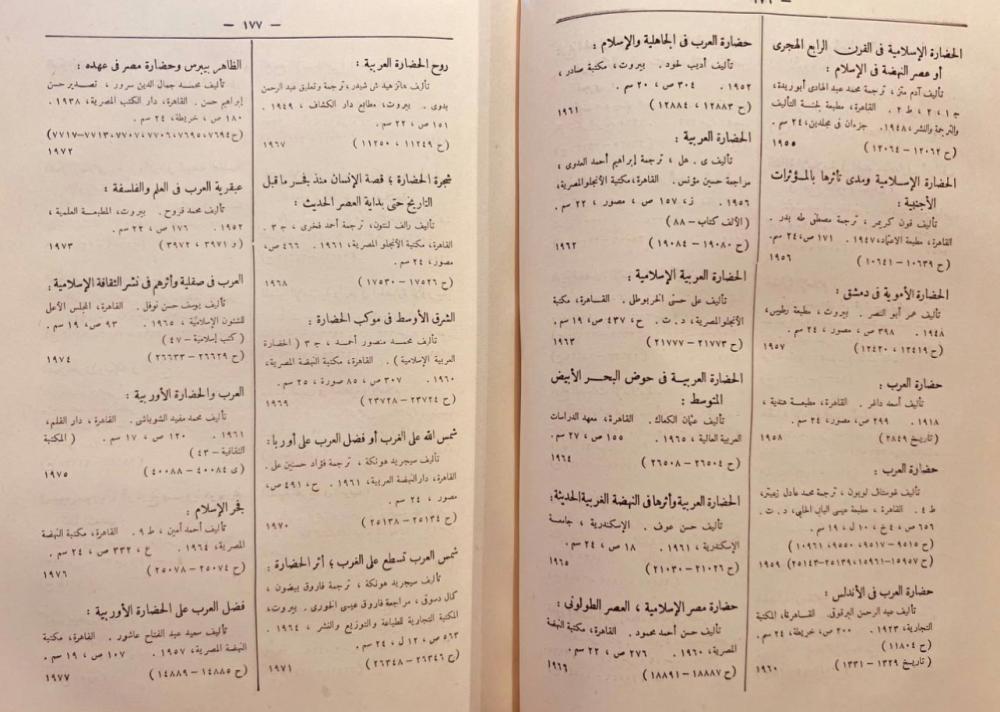 — ١٧٦ —
الحضارة الإسلامية فى القرن الرابع الهجرى
أو عصر النهضة فى الإسلام :
تأليف آدم متز ، ترجمة محمد عبد الهادى أبو ريدة ،
ج ١ ، ٢ ، ط ٢ . القاهرة ، مطبعة لجنة التأليف
والترجمة والنشر ، ١٩٤٨ . جزءان فى مجلدين ، ٢٤ سم .
(ح ١٢٠٦٢ – ١٢٠٦٤) ١٩٥٥
الحضارة الإسلامية ومدى تأثرها بالمؤثرات
الأجنبية :
تأليف فون كريمر ، ترجمة مصطفى طه بدر .
القاهرة ، مطبعة الاعتماد ، ١٩٤٧ . ١٧١ ص ، ٢٤ سم .
(ح ١٠٦٣٩ – ١٠٦٤١) ١٩٥٦
الحضارة الأموية فى دمشق :
تأليف عمر أبو النصر . بيروت ، مطبعة
١٩٤٨ . ٣٩٨ ص ، مصور ، ٢٤ سم .
(ح ١٢٤١٩ ، ١٢٤٢٠) ١٩٥٧
حضارة العرب :
تأليف أسعد داغر . القاهرة ، مطبعة هندية ،
١٩١٨ . ٢٩٩ ص ، مصور ، ٢٤ سم .
(تاريخ ٢٨٤٩) ١٩٥٨
حضارة العرب :
تأليف غوستاف لوبون ، ترجمة محمد عادل زعيتر ،
ط ٤ . القاهرة ، مطبعة عيسى البابى الحلبى ، د . ت .
٦٥٦ ص ، ٤ خ ، ١٠ ل ، ١٩ سم .
(ح ٩٥١٥ – ٩٥١٧ ، ٩٥٥٠ ، ١٠٩٦١)
(ح ١٥٩٥٧ – ١٥٩٦١ ، ٢٥١٣٩ – ٢٥١٤٣) ١٩٥٩
حضارة العرب فى الأندلس :
تأليف عبد الرحمن البرقوقى . القاهرة ، المكتبة
التجارية ، ١٩٢٣ . ٢٠٠ ص ، خريطة ، ٢٤ سم .
(ح ١١٨٠٤)
(تاريخ ١٣٢٩ – ١٣٣١) ١٩٦٠
حضارة العرب فى الجاهلية والإسلام :
تأليف أديب لحود . بيروت ، مكتبة صادر ،
١٩٥٢ . ٣٠٤ ص ، ٢٠ سم .
(ح ١٢٨٨٣ ، ١٢٨٨٤) ١٩٦١
الحضارة العربية :
تأليف ى . هل ، ترجمة إبراهيم أحمد العدوى ،
مراجعة حسين مؤنس . القاهرة ، مكتبة الأنجلو المصرية ،
١٩٥٦ . ز ، ١٥٧ ص ، مصور ، ٢٢ سم .
(الألف كتاب – ٨٨)
(ح ١٩٠٨٠ – ١٩٠٨٤) ١٩٦٢
الحضارة العربية الإسلامية :
تأليف على حسنى الخربوطلى . القاهرة ، مكتبة
الأنجلو المصرية ، د . ت . ح ، ٤٣٧ ص ، ١٩ سم .
(ح ٢١٧٧٣ – ٢١٧٧٧) ١٩٦٣
الحضارة العربية فى حوض البحر الأبيض
المتوسط :
تأليف عثمان الكعاك . القاهرة ، معهد الدراسات
العربية العالية ، ١٩٦٥ . ١٥٥ ص ، ٢٧ سم .
(ح ٢٦٥٠٤ – ٢٦٥٠٨) ١٩٦٤
الحضارة العربية وأثرها فى النهضة الغربية الحديثة :
تأليف حسن عون . الإسكندرية ، جامعة
الإسكندرية ، ١٩٦١ . ١٨ ص ، ٢٤ سم .
(ح ٢١٠٢٦ – ٢١٠٣٠) ١٩٦٥
حضارة مصر الإسلامية ، العصر الطولونى :
تأليف حسن أحمد محمود . القاهرة ، مكتبة النهضة
المصرية ، ١٩٦٠ . ٢٧٦ ص ، ٢٢ سم .
(ح ١٨٨٨٧ – ١٨٨٩١) ١٩٦٦
— ١٧٧ —
روح الحضارة العربية :
تأليف هانز هيد ش شيدر ، ترجمة وتعليق عبد الرحمن
بدوى . بيروت ، مطابع دار الكشاف ، ١٩٤٩ .
١٥١ ص ، ٢٢ سم .
(ح ١١٢٤٩ ، ١١٢٥٠) ١٩٦٧
شجرة الحضارة ؛ قصة الإنسان منذ فجر ما قبل
التاريخ حتى بداية العصر الحديث :
تأليف رالف لنتون ، ترجمة أحمد فخرى ، ج ٣ .
القاهرة ، مكتبة الأنجلو المصرية ، ١٩٦١ . ٤٦٦ ص ،
مصور ، ٢٤ سم .
(ح ١٧٥٢٦ – ١٧٥٣٠) ١٩٦٨
الشرق الأوسط فى موكب الحضارة :
تأليف محمد منصور أحمد ، ج ٣ (الحضارة
العربية الإسلامية) . القاهرة ، مكتبة النهضة المصرية ،
١٩٦٠ . ٣٠٧ ص ، ٨٥ صورة ، ٢٥ سم .
(ح ٢٣٧٢٤ – ٢٣٧٢٨) ١٩٦٩
شمس الله على الغرب أو فضل العرب على أوربا :
تأليف سيجريد هونكة ، ترجمة فؤاد حسنين على .
القاهرة ، دار النهضة العربية ، ١٩٦١ . ح ، ٤٩١ ص ،
مصور ، ٢٤ سم .
(ح ٢٥١٣٤ – ٢٥١٣٨) ١٩٧٠
شمس العرب تسطع على الغرب ؛ أثر الحضارة :
تأليف سيجريد هونكة ، ترجمة فاروق بيضون ،
كمال دسوقى ، مراجعة فاروق عيسى الخورى . بيروت ،
المكتبة التجارية للطباعة والتوزيع والنشر ، ١٩٦٤ .
٥٦٣ ص ، ١٢ ل ، ٢٤ سم .
(ح ٢٦٣٤٦ – ٢٦٣٤٨) ١٩٧١
الظاهر بيبرس وحضارة مصر فى عهده :
تأليف محمد جمال الدين سرور ، تصدير حسن
إبراهيم حسن . القاهرة ، دار الكتب المصرية ، ١٩٣٨ .
١٨٠ ص ، خريطة ، ٢٤ سم .
(ح ٧٦٩٤ ، ٧٦٩٥ ، ٧٧٠٦ ، ٧٧٠٧ ، ٧٧١٣ – ٧٧١٧)
١٩٧٢
عبقرية العرب فى العلم والفلسفة :
تأليف محمد فروخ . بيروت ، المطبعة العلمية ،
١٩٥٢ . ١٧٦ ص ، ٢٢ سم .
(و ٣٩٧١ ، ٣٩٧٢) ١٩٧٣
العرب فى صقلية وأثرهم فى نشر الثقافة الإسلامية :
تأليف يوسف حسن نوفل . القاهرة ، المجلس الأعلى
للشئون الإسلامية ، ١٩٦٥ . ٩٣ ص ، ١٩ سم .
(كتب إسلامية – ٤٧)
(ح ٢٦٦٢٩ – ٢٦٦٣٣) ١٩٧٤
العرب والحضارة الأوربية :
تأليف محمد مفيد الشوباشى . القاهرة ، دار القلم ،
١٩٦١ . ١٢٠ ص ، ١٧ سم . (المكتبة
الثقافية – ٤٣)
(ى ٤٠٠٨٤ – ٤٠٠٨٨) ١٩٧٥
فجر الإسلام :
تأليف أحمد أمين ، ط ٩ . القاهرة ، مكتبة النهضة
المصرية ، ١٩٦٤ . ع ، ٣٣٢ ص ، ٢٤ سم .
(ح ٢٥٠٧٤ – ٢٥٠٧٨) ١٩٧٦
فضل العرب على الحضارة الأوربية :
تأليف سعيد عبد الفتاح عاشور . القاهرة ، مكتبة
النهضة المصرية ، ١٩٥٧ . ١٠٧ ص ، ١٩ سم .
(ح ١٤٨٨٥ – ١٤٨٨٩) ١٩٧٧